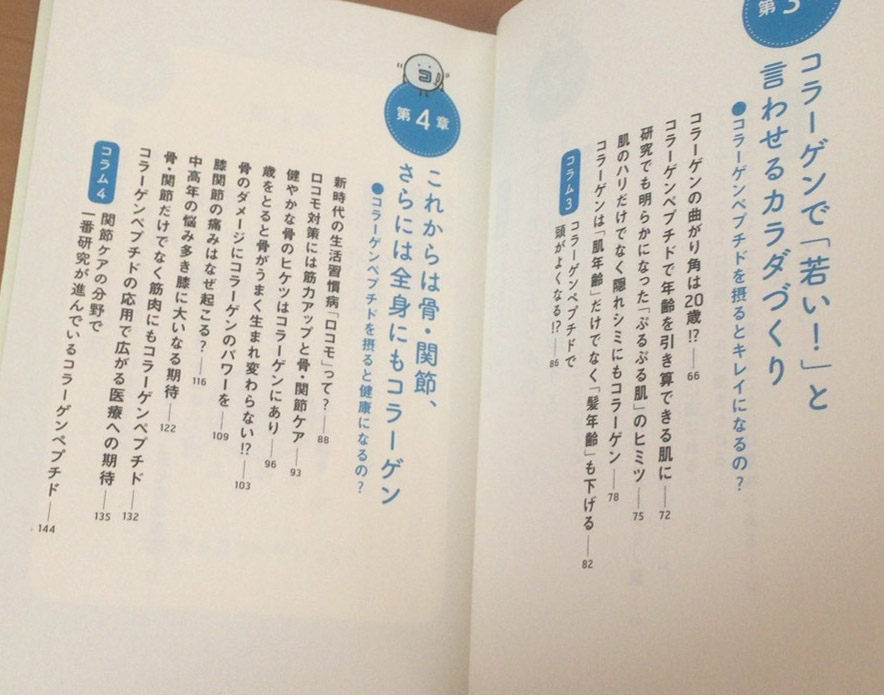 第3
コラーゲンで「若い!」と
言わせるカラダづくり
●コラーゲンペプチドを摂るとキレイになるの?
コラーゲンの曲がり角は20歳!? 66
コラーゲンペプチドで年齢を引き算できる肌に 72
研究でも明らかになった「ぷるぷる肌」のヒミツ 75
肌のハリだけでなく隠れシミにもコラーゲン 78
コラーゲンは「肌年齢」だけでなく「髪年齢」も下げる 82
コラム3
コラーゲンペプチドで
頭がよくなる!? 86
コ
第4章
これからは骨・関節、
さらには全身にもコラーゲン
●コラーゲンペプチドを摂ると健康になるの?
新時代の生活習慣病「ロコモ」って? 88
ロコモ対策には筋力アップと骨・関節ケア 93
健やかな骨のヒケツはコラーゲンにあり 96
歳をとると骨がうまく生まれ変わらない!? 103
骨のダメージにコラーゲンのパワーを 109
膝関節の痛みはなぜ起こる? 116
中高年の悩み多き膝に大いなる期待 122
骨・関節だけでなく筋肉にもコラーゲンペプチド 132
コラーゲンペプチドの応用で広がる医療への期待 135
コラム4
関節ケアの分野で
一番研究が進んでいるコラーゲンペプチド 144